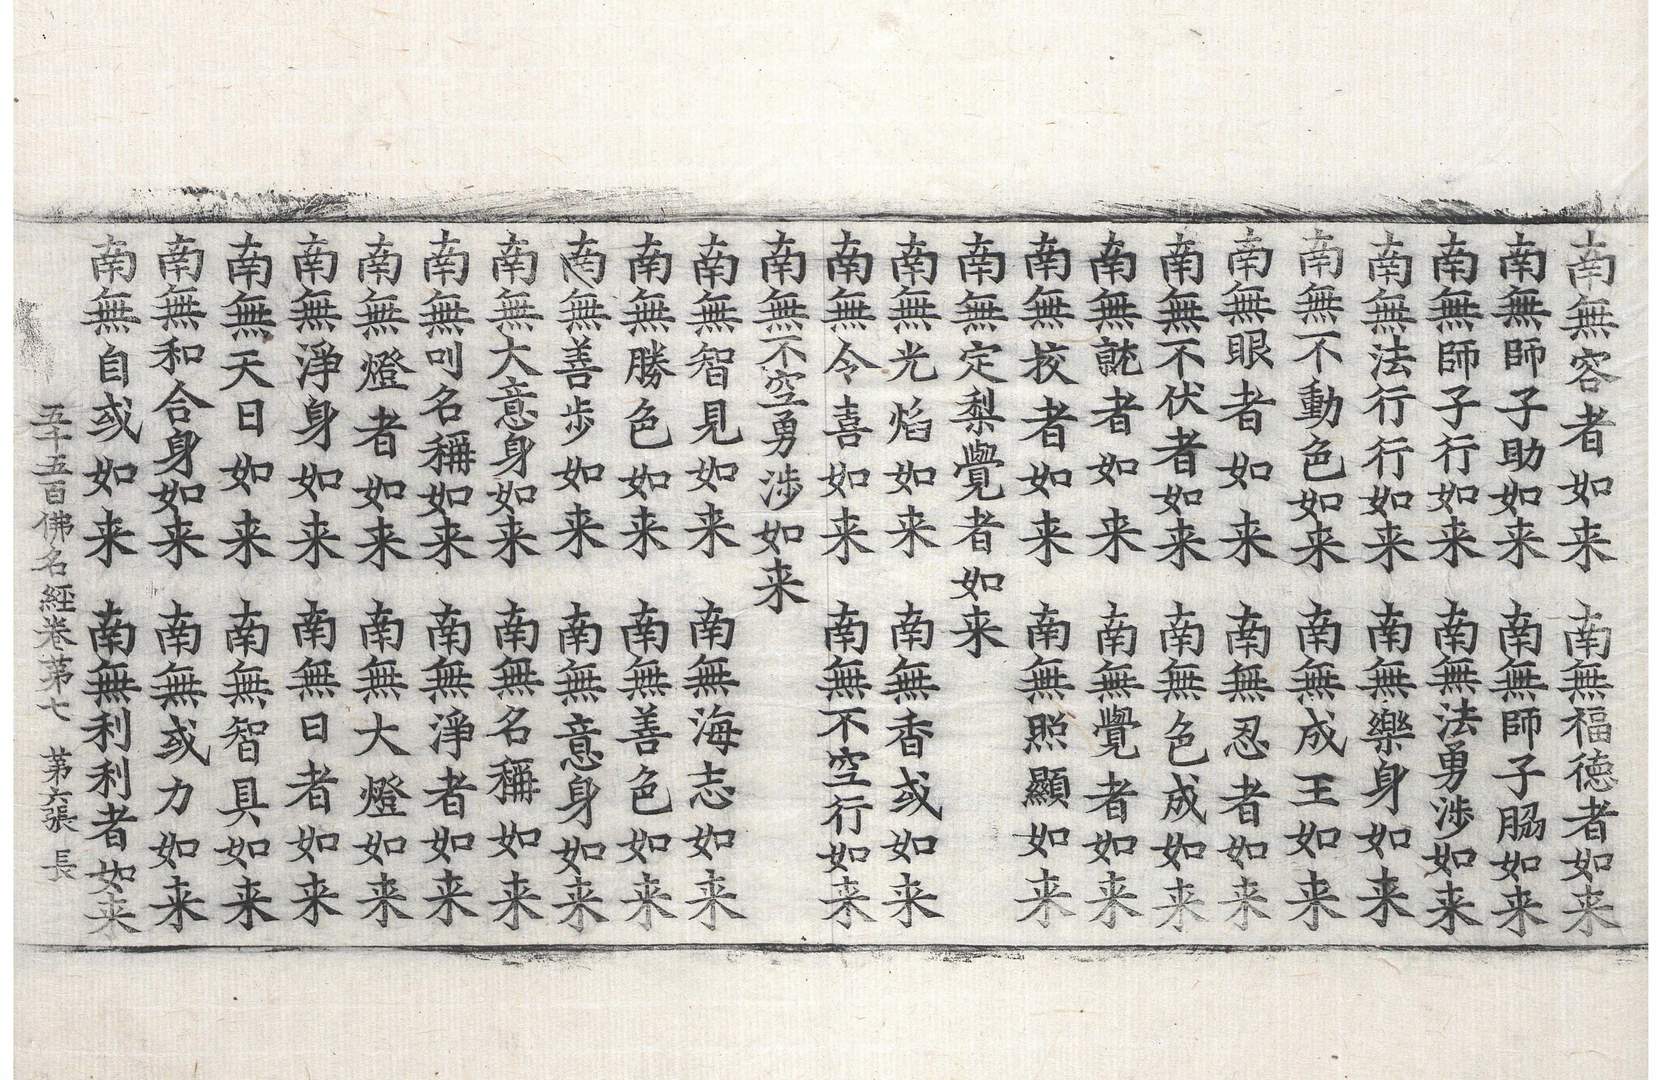 南無容者如来 南無福德者如来
南無師子助如来 南無師子脇如来
南無師子行如来 南無法勇渉如来
南無法行行如来 南無樂身如来
南無不動色如来 南無成王如来
南無眼者如来 南無忍者如来
南無不伏者如来 南無色成如来
南無說者如来 南無覺者如来
南無挍者如来 南無照顯如来
南無定梨覺者如来
南無光焰如来 南無香或如来
南無令喜如来 南無不空行如来
南無不空勇渉如来
南無智見如来 南無海志如来
南無勝色如来 南無善色如来
南無善步如来 南無意身如来
南無大意身如来 南無名稱如来
南無叫名稱如来 南無淨者如来
南無燈者如来 南無大燈如来
南無淨身如来 南無日者如来
南無天日如来 南無智具如来
南無和合身如来 南無或力如来
南無自或如来 南無利利者如来
五千五百佛名經卷第七 第六張 長